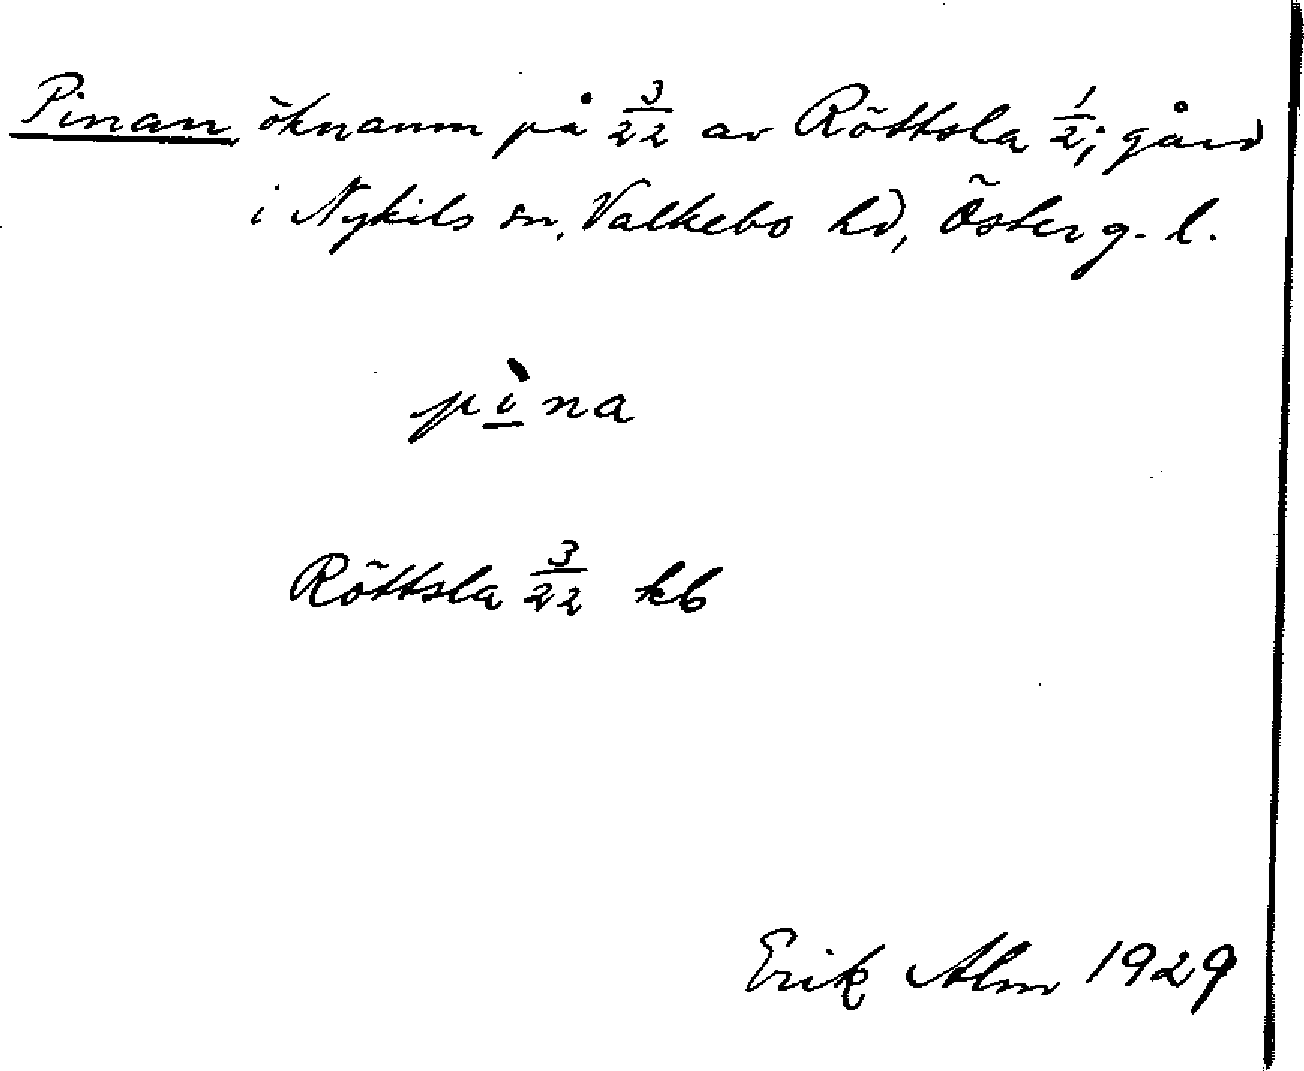 Pinan, öknamn på 3/22 av Röttsla 1/2; gård
i Nykils sn, Valkebo hd, Österg. l.
pìna
Röttsla 3/22 kb
Erik Alm 1929